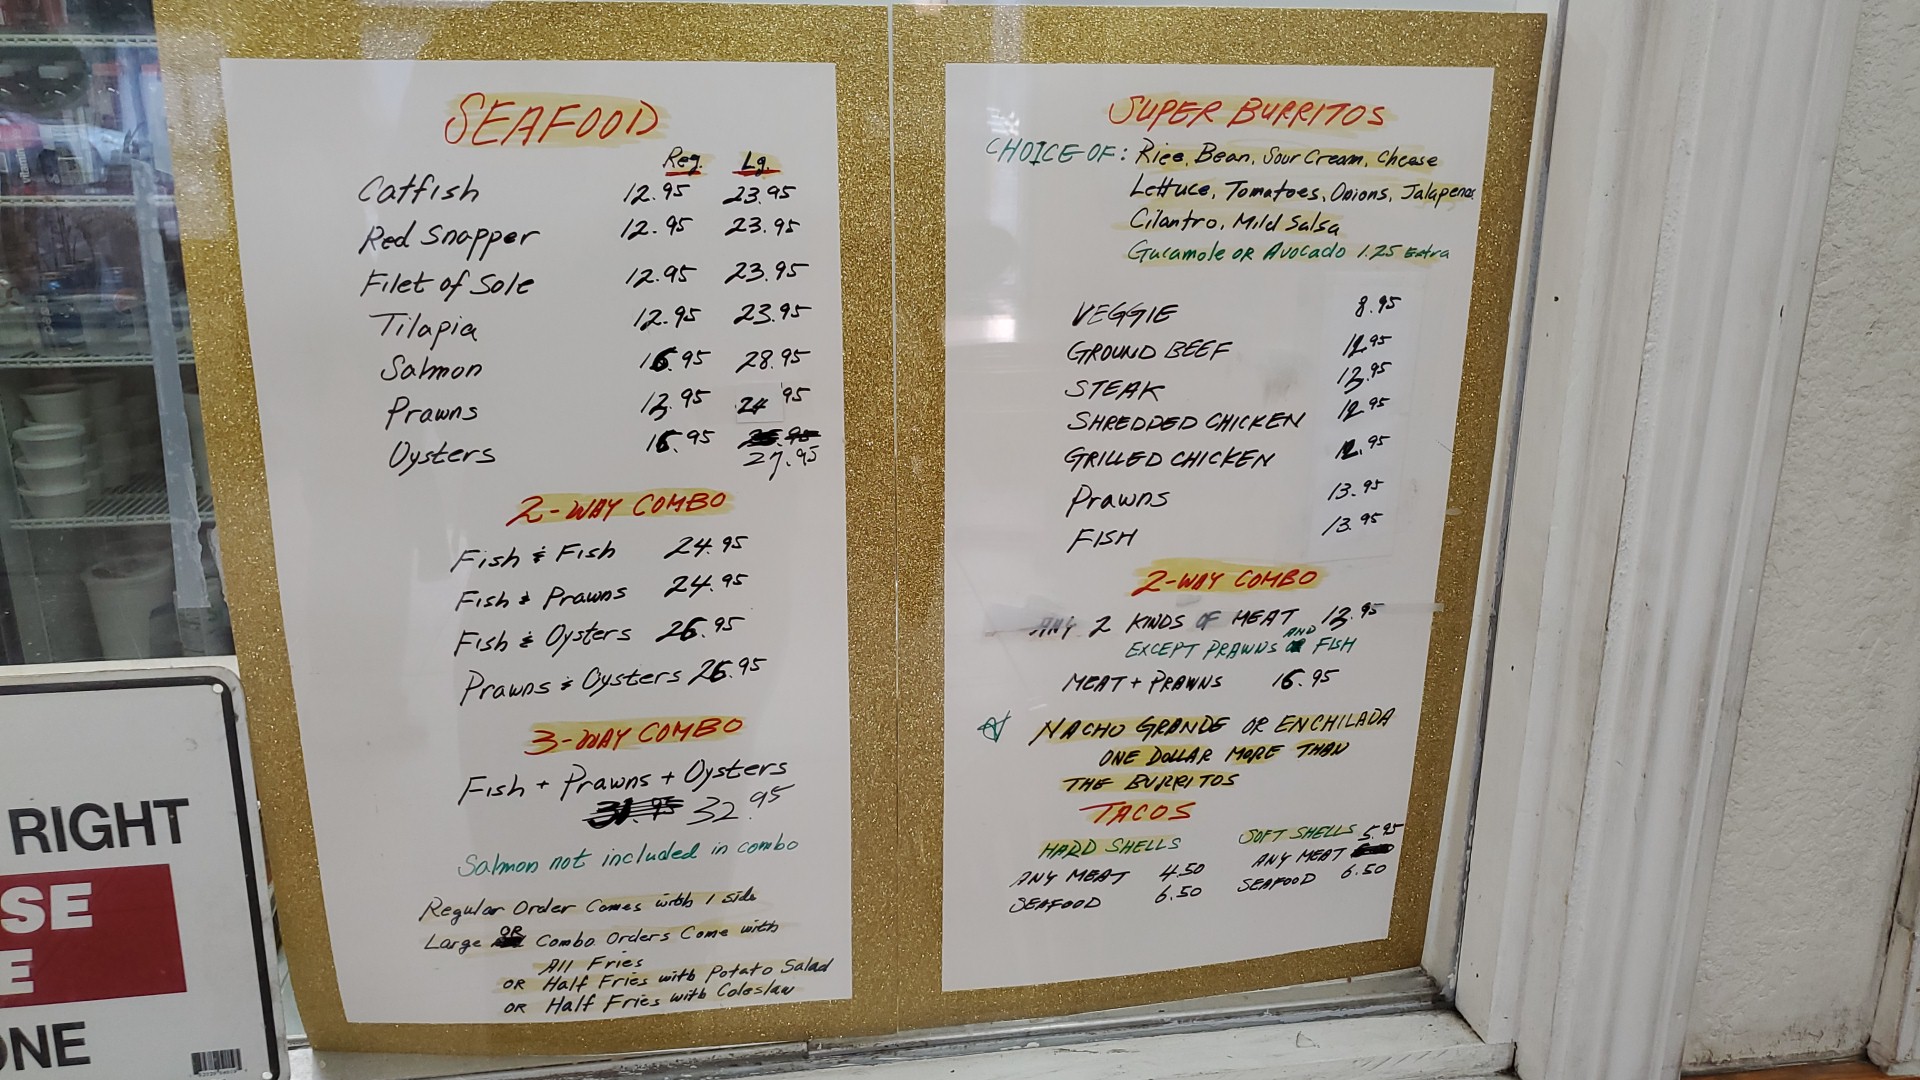 SEAFOOD
Reg. Lg.
Catfish 12.95 23.95
Red Snapper 12.95 23.95
Filet of Sole 12.95 23.95
Tilapia 12.95 23.95
Salmon 16.95 28.95
Prawns 13.95 24 95
Oysters 16.95
27.95
2-WAY COMBO
Fish & Fish 24.95
Fish & Prawns 24.95
Fish & Oysters 26.95
Prawns & Oysters 26.95
3-WAY COMBO
Fish + Prawns + Oysters
31.95 32.95
Salmon not included in combo
Regular Order Comes with 1 side
Large OR Combo Orders Come with
All Fries
OR Half Fries with Potato Salad
OR Half Fries with Coleslaw
SUPER BURRITOS
CHOICE OF: Rice, Bean, Sour Cream, Cheese
Lettuce, Tomatoes, Onions, Jalapenos
Cilantro, Mild Salsa
Gucamole OR Avocado 1.25 Extra
VEGGIE 8.95
GROUND BEEF 12.95
STEAK 13.95
SHREDDED CHICKEN 12.95
GRILLED CHICKEN 12.95
Prawns 13.95
FISH 13.95
2-WAY COMBO
ANY 2 KINDS OF MEAT 13.95
EXCEPT PRAWNS AND FISH
MEAT + PRAWNS 16.95
NACHO GRANDE OR ENCHILADA
ONE DOLLAR MORE THAN
THE BURRITOS
TACOS
HARD SHELLS
ANY MEAT 4.50
SEAFOOD 6.50
SOFT SHELLS 5.95
ANY MEAT
SEAFOOD 6.50
RIGHT
SE
E
ONE